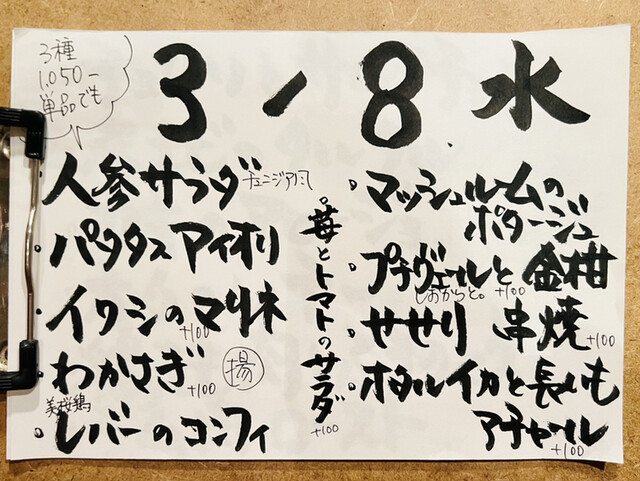 3種
1,050-
単品でも
3/8 水
人参サラダ チュニジア風
パタタス アイオリ
イワシのマリネ
+100
わかさぎ 揚
+100
美桜鶏
レバーのコンフィ
苺とトマトのサラダ
+100
マッシュルームの
ポタージュ
プチヴェールと金柑
しおからと。 +100
せせり 串焼
+100
ホタルイカと長いも
アチャール
+100